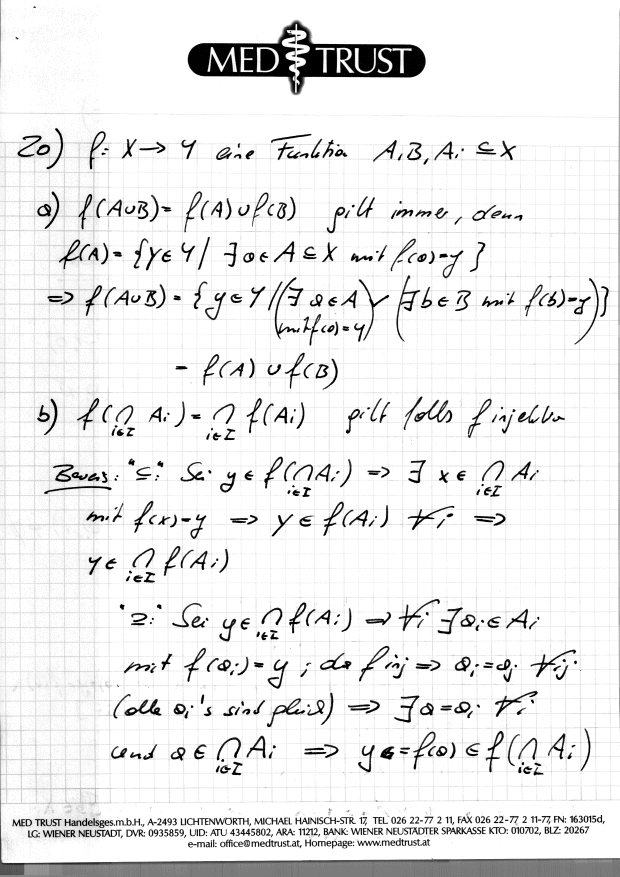 MED TRUST
20) f: X → Y eine Funktion A, B, Ai ⊆ X
a) f(A∪B) = f(A) ∪ f(B) gilt immer, denn
f(A) = {y∈Y | ∃a∈A⊆X mit f(a)=y}
⇒ f(A∪B) = {y∈Y | (∃a∈A mit f(a)=y) ∨ (∃b∈B mit f(b)=y)}
= f(A) ∪ f(B)
b) f(⋂_{i∈I} Ai) = ⋂_{i∈I} f(Ai) gilt falls f injektiv
Beweis: "⊆": Sei y∈f(⋂_{i∈I} Ai) ⇒ ∃ x∈ ⋂_{i∈I} Ai
mit f(x)=y ⇒ y∈f(Ai) ∀i ⇒
y∈ ⋂_{i∈I} f(Ai)
"⊇:" Sei y∈ ⋂_{i∈I} f(Ai) ⇒ ∀i ∃ai∈Ai
mit f(ai)=y; da f inj ⇒ ai=aj ∀i,j
(alle ai's sind gleich) ⇒ ∃a=ai ∀i
und a∈ ⋂_{i∈I} Ai ⇒ y=f(a)∈f(⋂_{i∈I} Ai)
MED TRUST Handelsges.m.b.H., A-2493 LICHTENWORTH, MICHAEL HAINISCH-STR. 17, TEL. 026 22-77 2 11, FAX 026 22-77 2 11-77, FN: 163015d,
LG: WIENER NEUSTADT, DVR: 0935859, UID: ATU 43445802, ARA: 11212, BANK: WIENER NEUSTÄDTER SPARKASSE KTO: 010702, BLZ: 20267
e-mail: office@medtrust.at, Homepage: www.medtrust.at